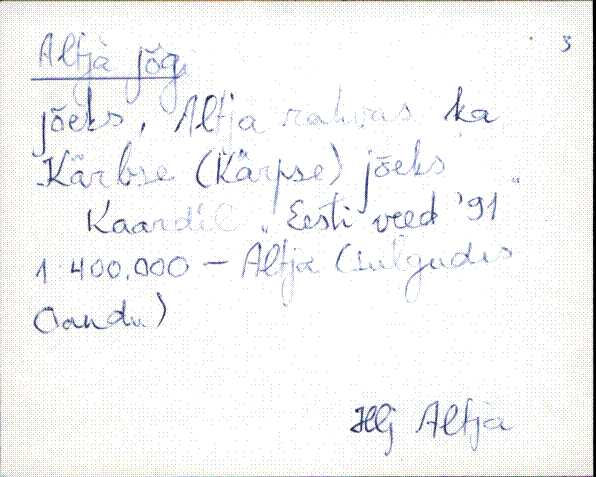 3
Altja jõgi
jõeks, Altja rahvas ka
Kärbse (Kärpse) jõeks
Kaardil "Eesti veed '91"
1:400.000 – Altja (sulgudes
Oandu)
Hlj Altja